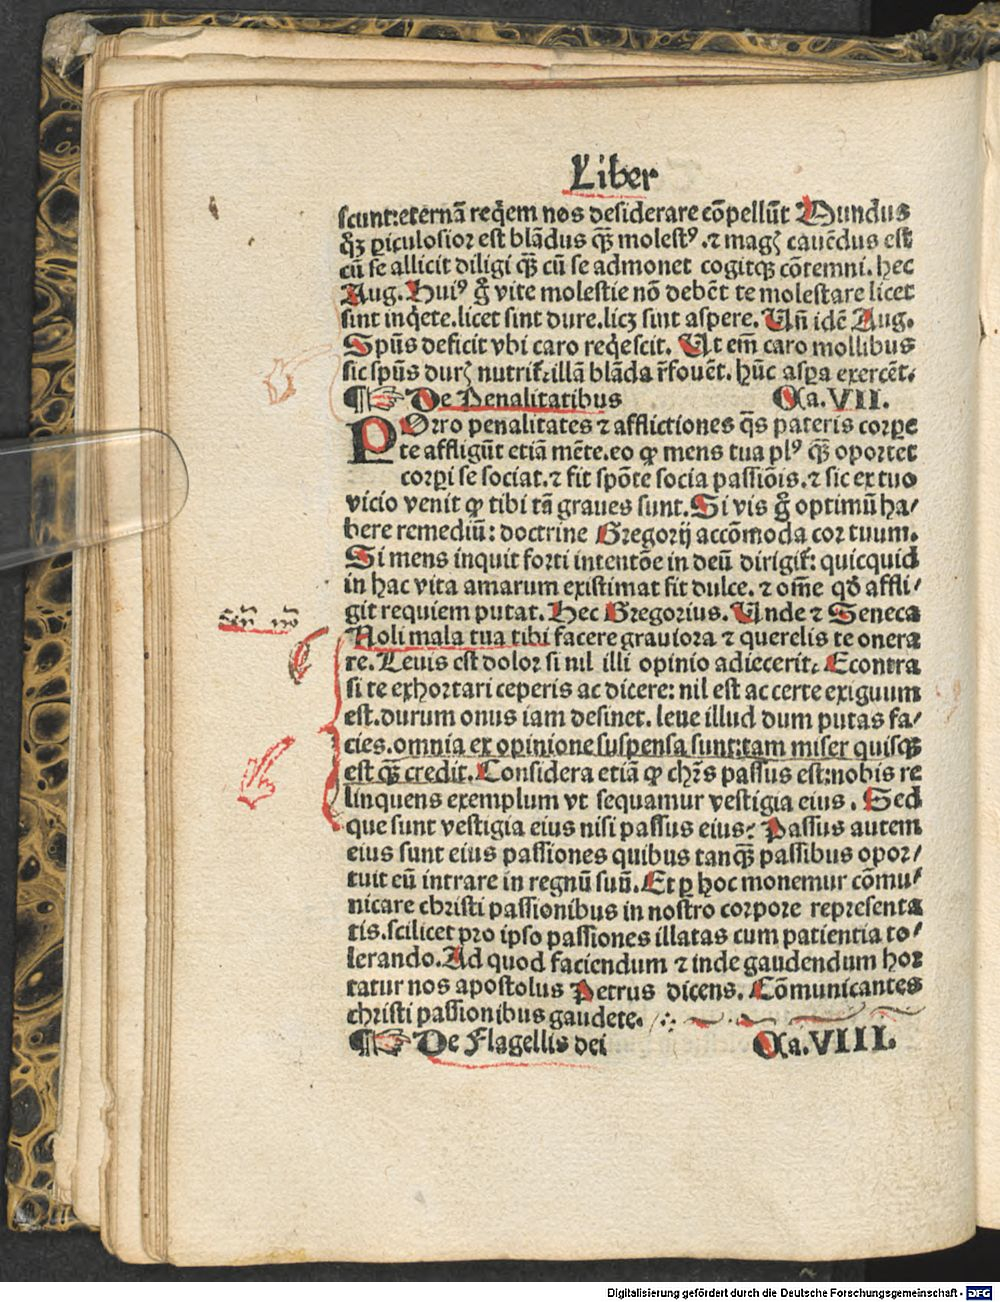 Liber
scunt:eternā reqͥem nos desiderare cōpellūt Mundus
qͣꝫ ꝑiculosior est blādus qͣꝫ molestꝰ .⁊ magꝭ cauēdus est
cū se allicit diligi qͣꝫ cū se admonet cogitqꝫ cōtemni. hec
Aug. Huiꝰ gͦ vite molestie nō debēt te molestare licet
sint inqͥete.licet sint dure.licꝫ sint aspere. Uñ idē Aug.
Spūs deficit vbi caro reqͥescit. Ut em̄ caro mollibus
sic spūs durꝭ nutrit᷑:illā blāda r̄fouēt. hūc aspa exercēt.
¶ De Penalitatibus Ca. VII.
POrro penalitates ⁊ afflictiones qͣs pateris corpe
te affligūt etiā mēte.eo ꝙ mens tua plꝰ qͣꝫ oportet
corpi se sociat.⁊ fit spōte socia passiōis.⁊ sic ex tuo
vicio venit ꝙ tibi tā graues sunt. Si vis gͦ optimū ha/
bere remediū: doctrine Gregorij accōmoda cor tuum.
Si mens inquit forti intentōe in deū dirigit᷑: quicquid
in hac vita amarum existimat fit dulce. ⁊ om̄e qd̄ affli/
git requiem putat. Hec Gregorius. Unde ⁊ Seneca
Noli mala tua tibi facere grauiora ⁊ querelis te onera
re. Leuis est dolor si nil illi opinio adiecerit: Econtra
si te exhortari ceperis ac dicere: nil est ac certe exiguum
est.durum onus iam desinet. leue illud dum putas fa/
cies.omnia ex opinione suspensa sunt:tam miser quisqꝫ
est qͣꝫ credit. Considera etiā ꝙ chr̄s passus est:nobis re
linquens exemplum vt sequamur vestigia eius. Sed
que sunt vestigia eius nisi passus eius: Passus autem
eius sunt eius passiones quibus tanqͣꝫ passibus opor/
tuit eū intrare in regnū suū. Et ꝑ hoc monemur cōmu/
nicare christi passionibus in nostro corpore representa
tis.scilicet pro ipso passiones illatas cum patientia to/
lerando. Ad quod faciendum ⁊ inde gaudendum hor
tatur nos apostolus Petrus dicens. Cōmunicantes
christi passionibus gaudete.
¶ De Flagellis dei Ca.VIII.
Digitalisierung gefördert durch die Deutsche Forschungsgemeinschaft - DFG